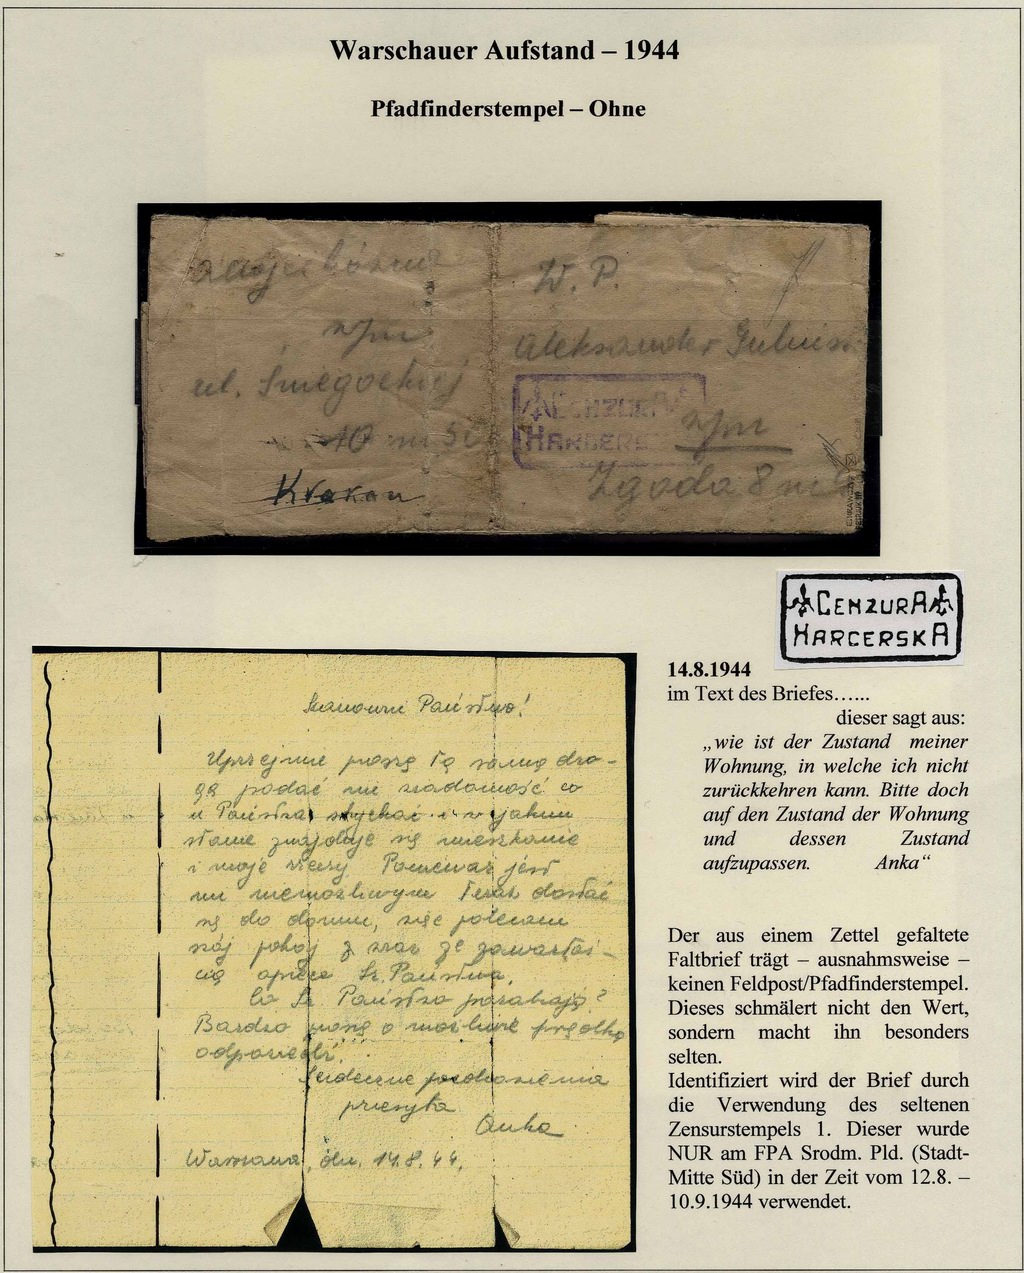 Warschauer Aufstand – 1944
Pfadfinderstempel – Ohne
W. P.
Aleksander
ul. Śniegockiej
10 m
Krakau
CENZURA
HARCERS
Zgoda 8 m
CENZURA
HARCERSKA
Szanowni Państwo!
Uprzejmie proszę tą samą dro-
gą podać mi wiadomość co
u Państwa słychać i w jakim
stanie znajduje się mieszkanie
i moje rzeczy Ponieważ jest
mi niemożliwym teraz dostać
się do domu, więc polecam
mój pokój z wraz ze zawartoś-
cią opiece Sz. Państwa.
Co Sz. Państwo porabiają?
Bardzo proszę o możliwie prędką
odpowiedź.
Serdeczne pozdrowienia
przesyła
Anka
Warszawa, dn. 14.8.44.
14.8.1944
im Text des Briefes…...
dieser sagt aus:
„wie ist der Zustand meiner
Wohnung, in welche ich nicht
zurückkehren kann. Bitte doch
auf den Zustand der Wohnung
und dessen Zustand
aufzupassen. Anka“
Der aus einem Zettel gefaltete
Faltbrief trägt – ausnahmsweise –
keinen Feldpost/Pfadfinderstempel.
Dieses schmälert nicht den Wert,
sondern macht ihn besonders
selten.
Identifiziert wird der Brief durch
die Verwendung des seltenen
Zensurstempels 1. Dieser wurde
NUR am FPA Srodm. Pld. (Stadt-
Mitte Süd) in der Zeit vom 12.8. –
10.9.1944 verwendet.